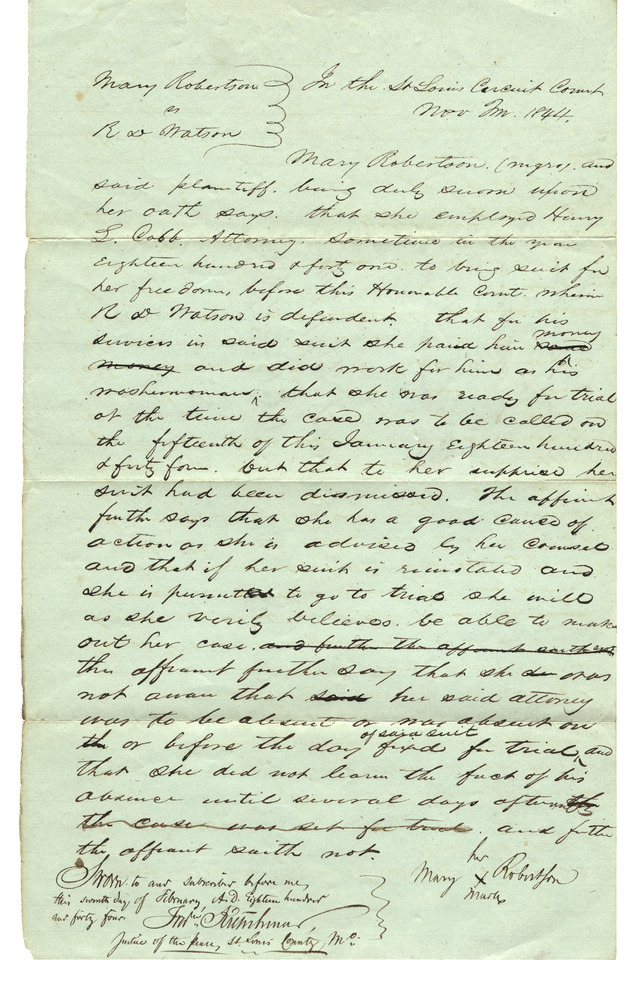 Mary Robertson } In the St Louis Circuit Court
vs Nov Tm. 1844.
R D Watson
Mary Robertson. (negro). and
said plaintiff. being duly sworn upon
her oath says. that she employed Henry
L. Cobb. Attorney. sometime in the year
Eighteen hundred & forty one. to bring suit for
her freedom, before this Honorable Court. wherein
R D Watson is defendent. that for his
services in said suit she paid him money
money and did work for him as his
washerwoman, that she was ready for trial
at the time the case was to be called on
the fifteenth of this January Eighteen hundred
& forty four. but that to her supprise her
suit had been dismissed. The affiant
further says that she has a good cause of
action as she is advised by her Counsel
and that if her suit is reinstated and
she is permitted to go to trial she will
as she verily believes. be able to make
out her case. and further the affiant saith not
the affiant further say that she was
not aware that said her said attorney
was to be absent or was absent on
the or before the day of said suit fixed for trial, and
that she did not learn the fact of his
absence until several days afterwards
the case was set for trial. and further
the affiant saith not.
her
Mary X Robertson
mark
Sworn to and subscribed before me,
this seventh day of February A.D. Eighteen hundred
and forty four
Justice of the Peace, St. Louis County, Mo.